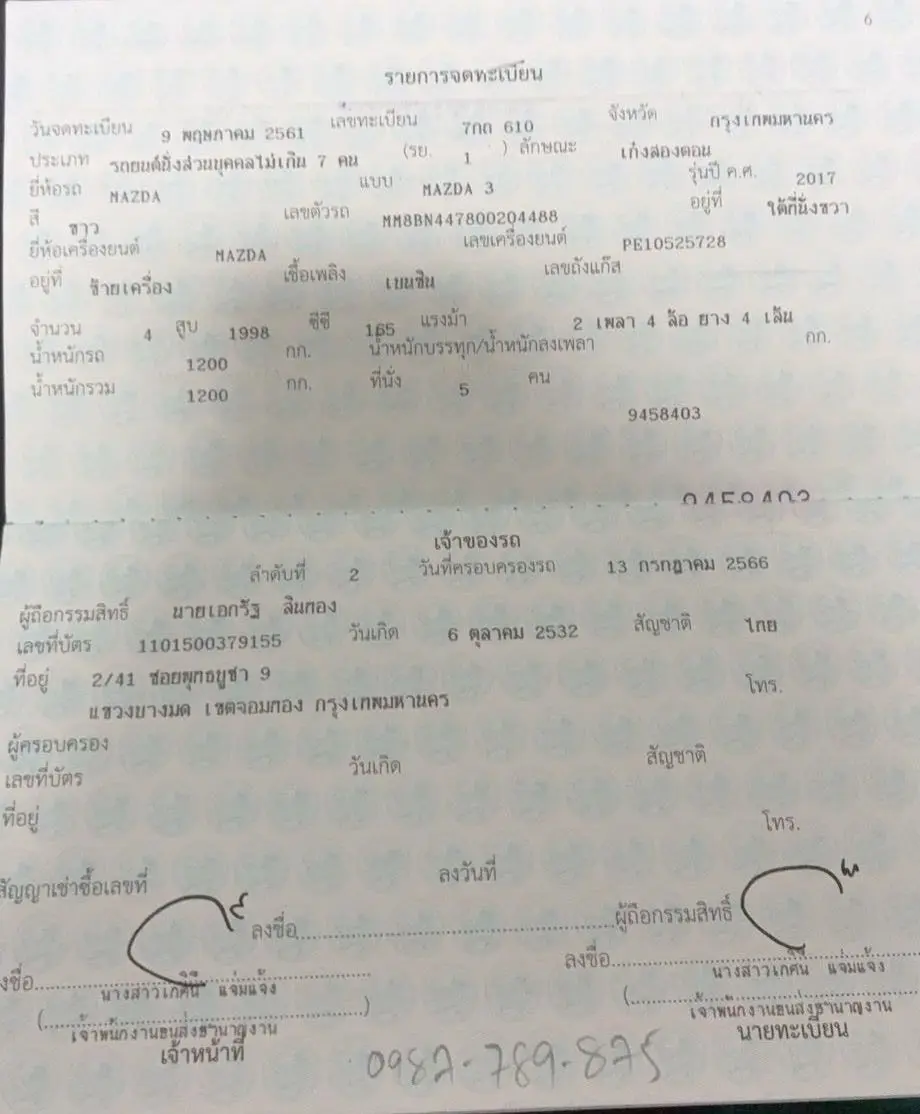 6
รายการจดทะเบียน
วันจดทะเบียน 9 พฤษภาคม 2561 เลขทะเบียน 7กถ 610 จังหวัด กรุงเทพมหานคร
ประเภท รถยนต์นั่งส่วนบุคคลไม่เกิน 7 คน (รย. 1 ) ลักษณะ เก๋งสองตอน
ยี่ห้อรถ MAZDA แบบ MAZDA 3 รุ่นปี ค.ศ. 2017
สี ขาว เลขตัวรถ MM8BN447800204488 อยู่ที่ ใต้ที่นั่งขวา
ยี่ห้อเครื่องยนต์ MAZDA เลขเครื่องยนต์ PE10525728
อยู่ที่ ซ้ายเครื่อง เชื้อเพลิง เบนซิน เลขถังแก๊ส
จำนวน 4 สูบ 1998 ซีซี 165 แรงม้า 2 เพลา 4 ล้อ ยาง 4 เส้น
น้ำหนักรถ 1200 กก. น้ำหนักบรรทุก/น้ำหนักลงเพลา กก.
น้ำหนักรวม 1200 กก. ที่นั่ง 5 คน
9458403
9458403
เจ้าของรถ
ลำดับที่ 2 วันที่ครอบครองรถ 13 กรกฎาคม 2566
ผู้ถือกรรมสิทธิ์ นายเอกรัฐ ลินทอง
เลขที่บัตร 1101500379155 วันเกิด 6 ตุลาคม 2532 สัญชาติ ไทย
ที่อยู่ 2/41 ซอยพุทธบูชา 9
แขวงบางมด เขตจอมทอง กรุงเทพมหานคร โทร.
ผู้ครอบครอง
เลขที่บัตร วันเกิด สัญชาติ
ที่อยู่ โทร.
สัญญาเช่าซื้อเลขที่ ลงวันที่
ลงชื่อ ผู้ถือกรรมสิทธิ์
ลงชื่อ ลงชื่อ
นางสาวเกศินี แจ่มแจ้ง นางสาวเกศินี แจ่มแจ้ง
( ) (
เจ้าพนักงานขนส่งชำนาญงาน เจ้าพนักงานขนส่งชำนาญงาน
เจ้าหน้าที่ นายทะเบียน
0982-789-875